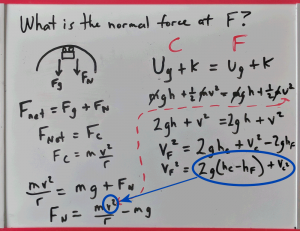 What is the normal force at F?
F_g F_N
F_net = F_g + F_N
F_Net = F_c
F_c = m v²/r
mv²/r = mg + F_N
F_N = mv²/r - mg
C F
U_g + K = U_g + K
mgh + ½mv² = mgh + ½mv²
2gh + v² = 2gh + v²
v_F² = 2gh_c + v_c² - 2gh_F
v_F² = 2g(h_c - h_F) + v_c²